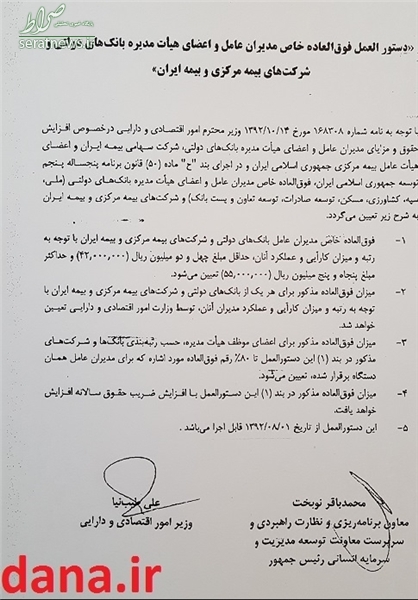 صراط
پایگاه خبری تحلیلی
seratnews.ir
«دستور العمل فوق‌العاده خاص مدیران عامل و اعضای هیأت مدیره بانک‌های دولتی و
شرکت‌های بیمه مرکزی و بیمه ایران»
با توجه به نامه شماره ۱۶۸۳۰۸ مورخ ۱۳۹۲/۱۰/۱۴ وزیر محترم امور اقتصادی و دارایی درخصوص افزایش
حقوق و مزایای مدیران عامل و اعضای هیأت مدیره بانک‌های دولتی، شرکت سهامی بیمه ایران و اعضای
هیأت عامل بیمه مرکزی جمهوری اسلامی ایران و در اجرای بند "ح" ماده (۵۰) قانون برنامه پنجساله پنجم
توسعه جمهوری اسلامی ایران، فوق‌العاده خاص مدیران عامل و اعضای هیأت مدیره بانک‌های دولتی (ملی،
سپه، کشاورزی، مسکن، توسعه صادرات، توسعه تعاون و پست بانک) و شرکت‌های بیمه مرکزی و بیمه ایران
به شرح زیر تعیین می‌گردد.
۱- فوق‌العاده خاص مدیران عامل بانک‌های دولتی و شرکت‌های بیمه مرکزی و بیمه ایران با توجه به
رتبه و میزان کارآیی و عملکرد آنان، حداقل مبلغ چهل و دو میلیون ریال (۴۲,۰۰۰,۰۰۰) و حداکثر
مبلغ پنجاه و پنج میلیون ریال (۵۵,۰۰۰,۰۰۰) تعیین می‌شود.
۲- میزان فوق‌العاده مذکور برای هر یک از بانک‌های دولتی و شرکت‌های بیمه مرکزی و بیمه ایران با
توجه به رتبه و میزان کارآیی و عملکرد مدیران آنان، توسط وزارت امور اقتصادی و دارایی تعیین
خواهد شد.
۳- میزان فوق‌العاده مذکور برای اعضای موظف هیأت مدیره، حسب رتبه‌بندی بانک‌ها و شرکت‌های
مذکور در بند (۱) این دستورالعمل تا ۸۰٪ رقم فوق‌العاده مورد اشاره که برای مدیران عامل همان
دستگاه برقرار شده، تعیین می‌شود.
۴- میزان فوق‌العاده مذکور در بند (۱) این دستورالعمل با افزایش ضریب حقوق سالانه افزایش
خواهد یافت.
۵- این دستورالعمل از تاریخ ۱۳۹۲/۰۸/۰۱ قابل اجرا می‌باشد.
محمدباقر نوبخت
معاون برنامه‌ریزی و نظارت راهبردی و
سرپرست معاونت توسعه مدیریت و
سرمایه انسانی رئیس جمهور
علی طیب‌نیا
وزیر امور اقتصادی و دارایی
dana.ir